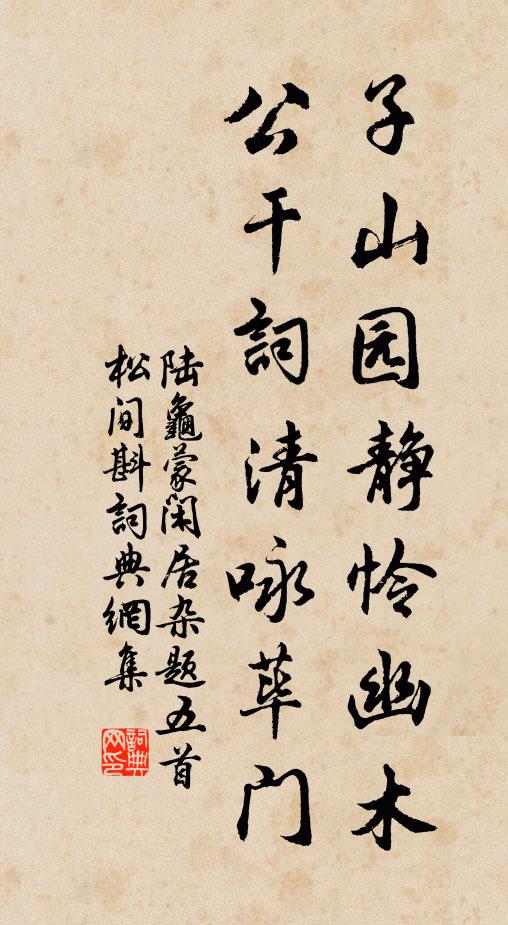 子山园静怜幽木
公干詞清咏荜门
陆龜蒙闲居杂题五首
松间斟詞典網集
詞典网印